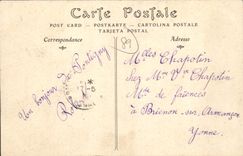 Carte Postale
POST CARD - POSTKARTE - CARTOLINA POSTALE
TARJETA POSTAL
Correspondance
Adresse
89
Un bonjour de Pontigny
Melles Chapotin
chez Mme Vve Chapotin
Mde de faïences
à Brienon sur Armançon
Yonne